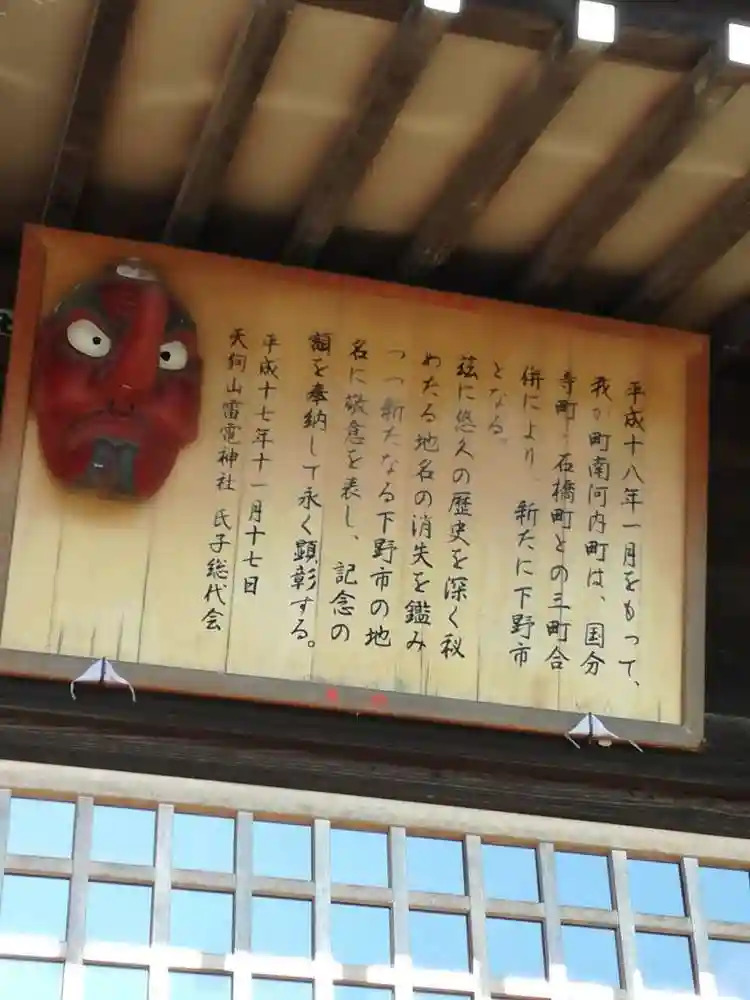 平成十八年一月をもって、
我が町南河内町は、国分
寺町・石橋町との三町合
併により、新たに下野市
となる。
茲に悠久の歴史を深く秘
めたる地名の消失を鑑み
つつ新たなる下野市の地
名に敬意を表し、記念の
額を奉納して永く顕彰する。
平成十七年十一月十七日
天狗山雷電神社 氏子総代会